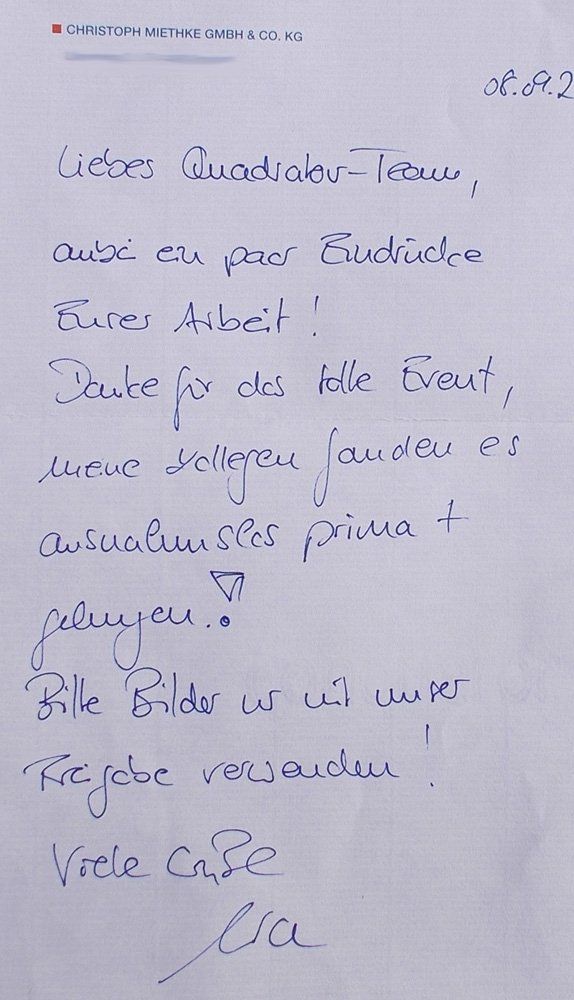 CHRISTOPH MIETHKE GMBH & CO. KG
08.09.2
Liebes Quadrator-Team,
anbei ein paar Eindrücke
Eurer Arbeit!
Danke für das tolle Event,
meine Kollegen fanden es
ausnahmslos prima +
gelungen!
Bitte Bilder nur mit unser
Freigabe verwenden!
Viele Grüße